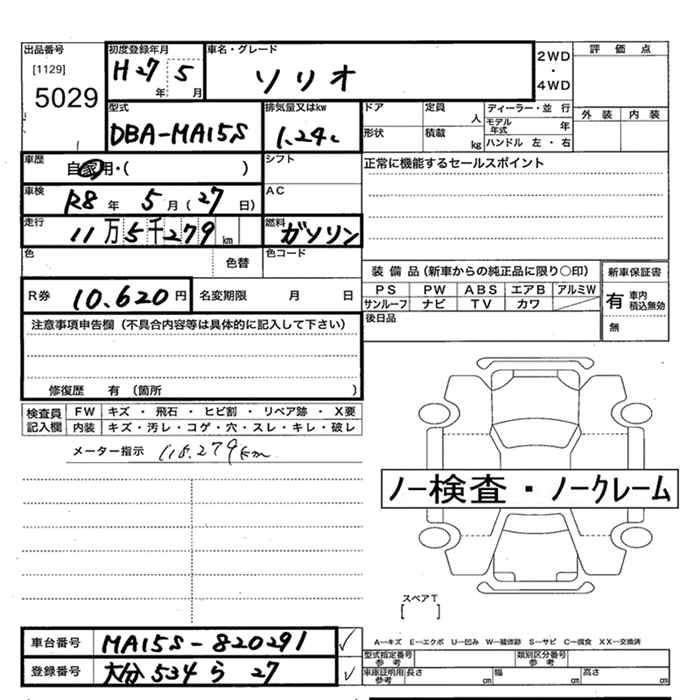 出品番号
[1129]
5029
初度登録年月
H27年 5月
車名・グレード
ソリオ
2WD
・
4WD
評価点
外装 内装
型式
DBA-MA15S
排気量又はkw
1.24c
ドア
定員 人
ディーラー・並行
モデル年式 年
形状
積載 kg
ハンドル 左・右
車歴
自家用・( )
シフト
正常に機能するセールスポイント
車検
R8年 5月(27日)
AC
走行
11万5千279km
燃料
ガソリン
色
色替
色コード
装備品(新車からの純正品に限り○印)
新車保証書
PS PW ABS エアB アルミW
サンルーフ ナビ TV カワ
有 車内積込無効
無
R券 10.620円
名変期限 月 日
後日品
注意事項申告欄(不具合内容等は具体的に記入して下さい)
修復歴 有(箇所 )
検査員記入欄
FW キズ・飛石・ヒビ割・リペア跡・X要
内装 キズ・汚レ・コゲ・穴・スレ・キレ・破レ
メーター指示 115.279km
ノー検査・ノークレーム
スペアT
[ ]
A—キズ E—エクボ U—凹み W—補修跡 S—サビ C—腐食 XX—交換済
車台番号 MA15S-820291
登録番号 大分 534 ら 27
型式指定番号 参考
類別区分番号 参考
車庫証明用 参考 長さ cm 幅 cm 高さ cm